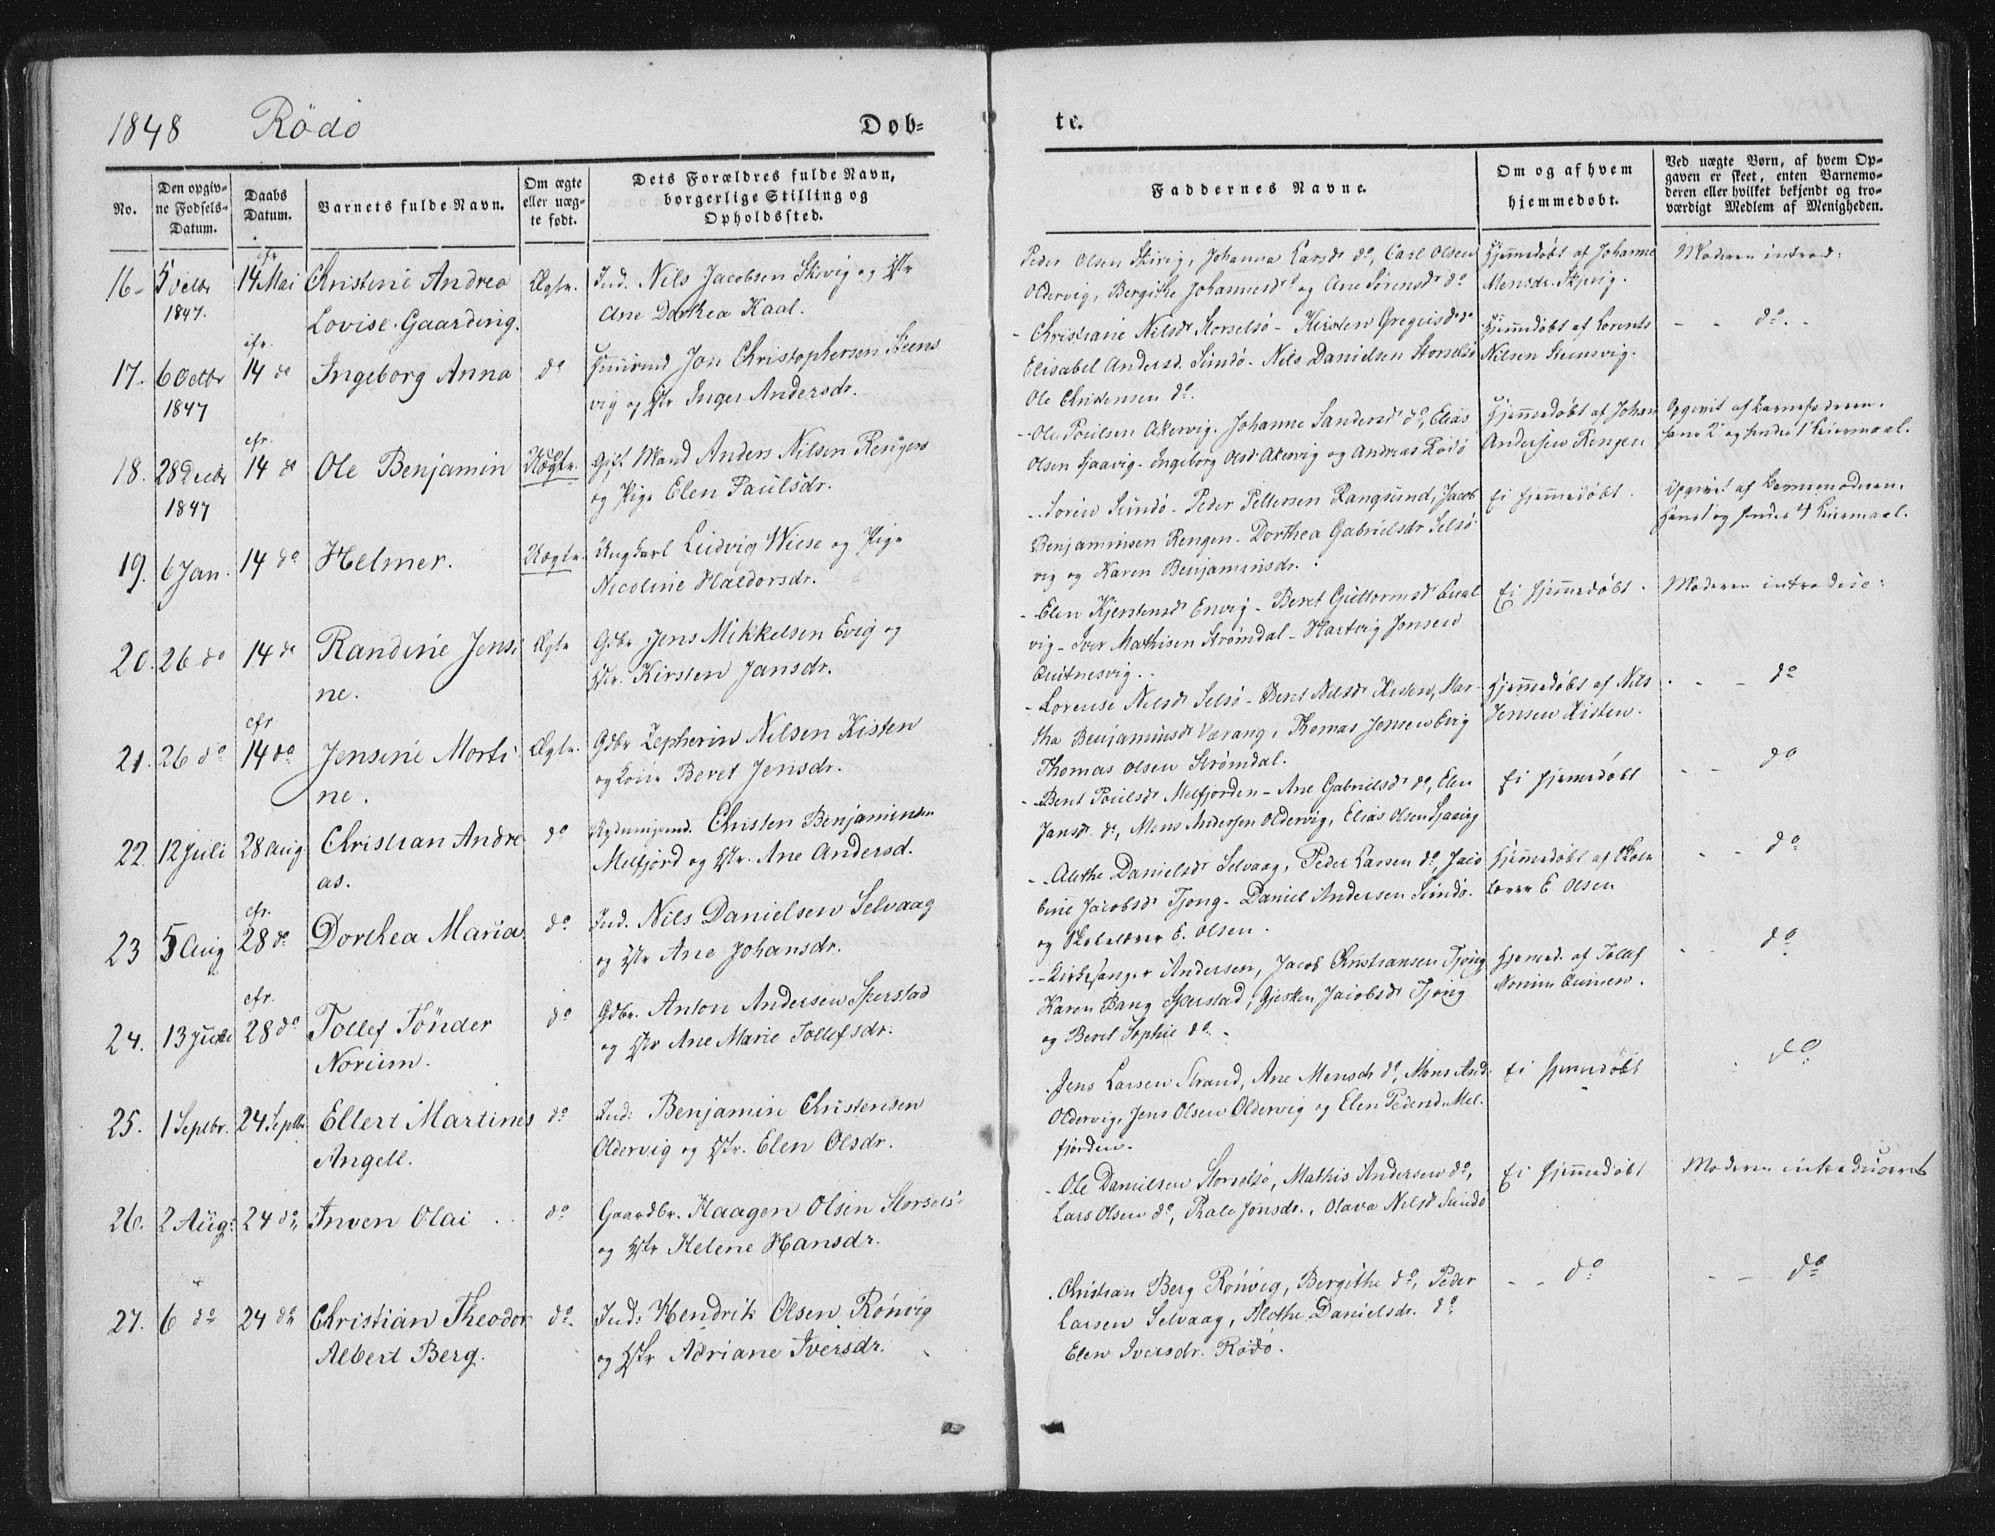 1848 Rödö Døb-
No. Den opgivne Fødsels-Datum. Daabs Datum. Barnets fulde Navn. Om ægte eller uægte født. Dets Forældres fulde Navn, borgerlige Stilling og Opholdssted.
16 5 Octbr 1847. cfr. 14 Mai Christine Andrea Ægte. Ind. Nils Jacobsen Skivig og Hr
Lovise Gaarding. Ane Dorthea Kaal.
17. 6 Octbr 1847 cfr. 14 do Ingeborg Anna do Jon Christophersen Steens
vig og Hr Inger Andersdr.
18. 28 Decbr 1847 cfr. 14 do Ole Benjamin Uægte. Gift Mand Anders Nilsen Rengen
og Pige Elen Paulsdr.
19. 6 Jan. 14 do Helmer. Uægte. Ungkarl Ludvig Wiese og Pige
Nicoline Haldorsdr.
20. 26 do 14 do Randine Jensi Ægte Gdbr Jens Mikkelsen Evig og
ne. Hr. Kirsten Jansdr.
21. 26 do cfr. 14 do Jensine Morti Ægte. Gdbr Zepherin Nilsen Kisten
ne. og Kone Beret Jensdr.
22. 12 Juli 28 Aug Christian Andre do Christen Benjaminsen
as. Melfjord og Hr. Ane Andersd.
23 5 Aug cfr. 28 do Dorthea Maria do Ind. Nils Danielsen Selvaag
og Hr Ane Johansdr.
24. 13 Juli cfr. 28 do Tollef Tönder do Gdbr. Anton Andersen Sperstad
Norum. og Hr Ane Marie Tollefsdr.
25. 1 Septbr. 24 Septbr Ellert Martines do Ind: Benjamin Christensen
Angell. Oldervig og Hr. Elen Olsdr.
26. 2 Aug: 24 do, Inven Olai do Gaardbr. Haagen Olsen Storselsö
og Hr Helene Hansdr.
27. 6 do 24 do Christian Theodor do. Ind: Hendrik Olsen Rönvig
Albert Berg. og Hr Adriane Iversdr.
te.
Faddernes Navne. Om og af hvem hjemmedøbt. Ved uægte Børn, af hvem Opgaven er skeet, enten Barnemoderen eller hvilket bekjendt og troværdigt Medlem af Menigheden.
Peder Olsen Skivig, Johanna Larsdr do, Carl Olsen Hjemmedøbt af Johanne Moderen introd:
Oldervig, Bergithe Johannesdr og Ane Sörensdr do Mensdr. Skjvig.
- Christiane Nilsdr Storselsö - Kirsten Gregersdr do Hjemmedøbt af Lorents - - do. -
Elisabet Andersd. Sundö - Nils Danielsen Storselsö Nilsen Steensvig.
Ole Christensen do.
- Ole Poulsen Akervig. Johanne Sandersdr do, Elias Hjemmedøbt af Johan Opgivet af Barnefaderen.
Olsen Sjaavig. Ingeborg Olsd Akervig og Andreas Rödö Andersen Rengen hans 2 og hendes 1 Leiermaal.
- Sören Sundö - Peder Pettersen Rangsund, Jacob Ei hjemmedøbt. Opgivet af Barnemoderen.
Benjaminsen Rengen - Dorthea Gabrielsdr Selsö Hans 1 og hendes 4 Leiermaal.
vig og Karen Benjaminsdr.
- Elen Kjerstensdr Envig - Beret Guttormsdr Ei hjemmedøbt. Moderen introduc:
vig - Iver Mathisen Strömdal - Hartvig Jonsen
- Lorense Nilsdr Selsö - Beret Nilsdr Kisten, Mar- Hjemmedøbt af Nils - - do
tha Benjaminsdr Værang, Thomas Jonsen Evig Jensen Kisten.
Thomas Olsen Strömdal.
- Beret Poulsdr Melfjorden - Ane Gabrielsdr do, Elen Ei hjemmedøbt - - do
Jansdr. do, Mons Andersen Oldervig, Elias Olsen Sjaavig
- Alethe Danielsdr Selvaag, Peder Larsen do, Jaco Hjemmedøbt af Skole - - do
bine Jacobsdr Tjong - Daniel Andersen Sundö. lærer E Olsen
og Skolelærer E. Olsen.
- Kirkesanger Andersen, Jacob Christiansen Tjong Hjemed. af Tollef - - do
Karen Bang Sperstad, Gjertken Jacobsdr Tjong
og Beret Sophie do.
Jens Larsen Strand, Ane Mensdr do, Mons And. Ei hjemmedøbt - do
Oldervig, Jens Olsen Oldervig og Elen Pedersd. Mel-
fjorden.
- Ole Danielsen Storselsö, Mathis Andersen do, Ei hjemmedøbt Moderen introduceret
Lars Olsen do, Rale Jonsdr., Olava Nilsd Sundö
Christian Berg Rönvig, Bergithe do, Peder - - do - - do
Larsen Selvaag, Alethe Danielsdr. do
Elen Iversdr. Rödö.